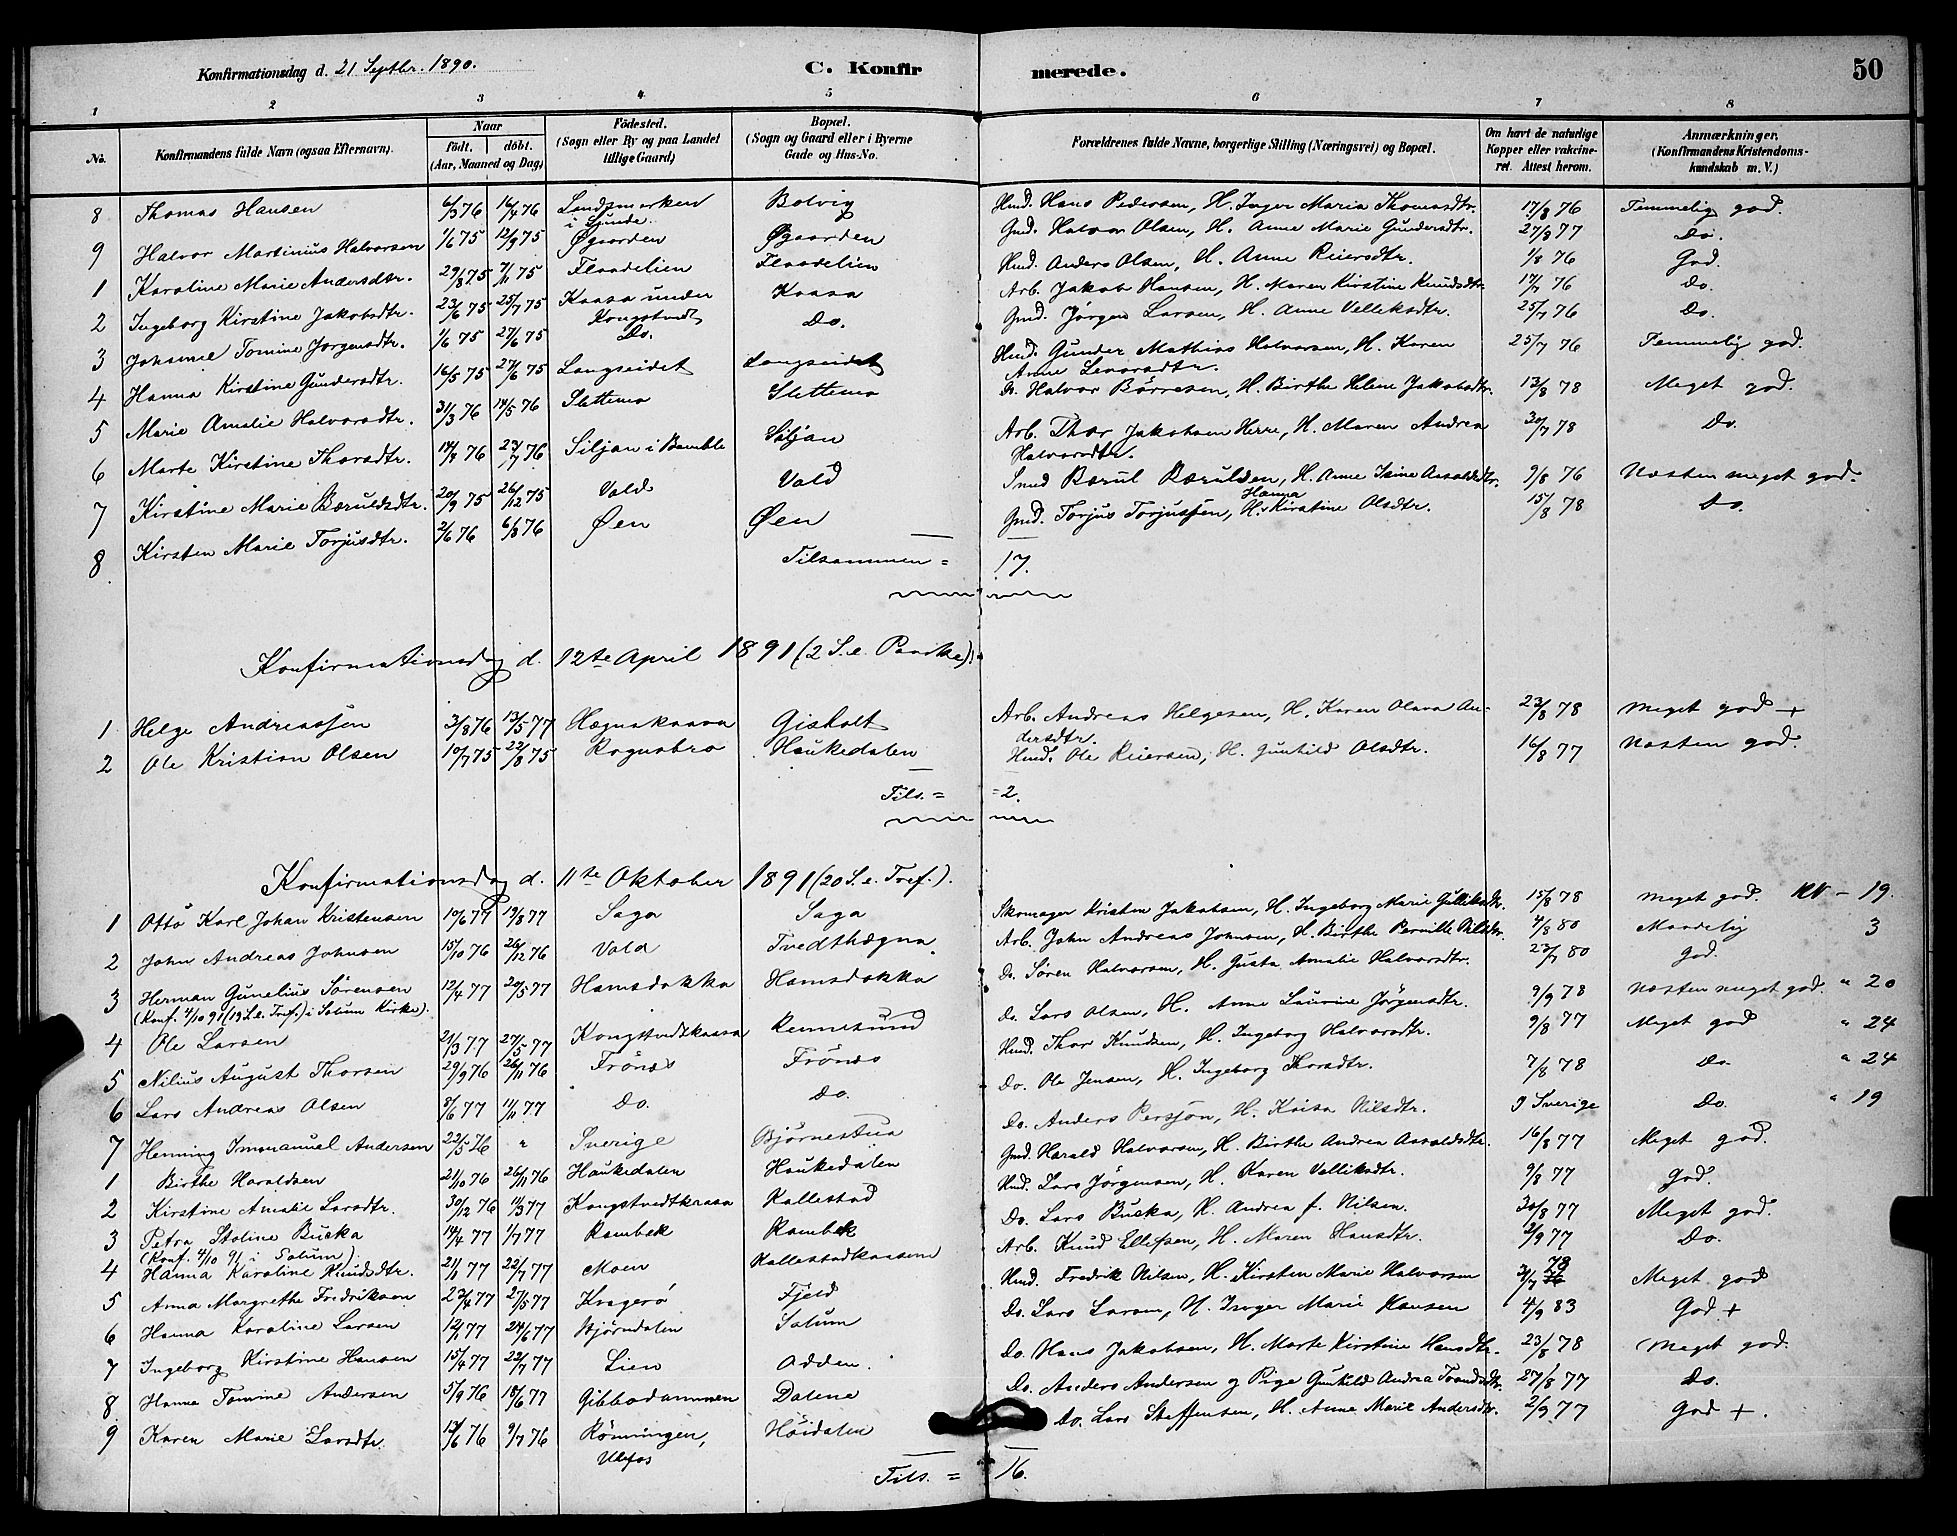 Konfirmationsdag d. 21 Septbr. 1890.
C. Konfirmerede.
50
1 2 3 4 5 6 7 8
No. Konfirmandens fulde Navn (ogsaa Efternavn). Naar födt. döbt. (Aar, Maaned og Dag) Födested. (Sogn eller By og paa Landet tillige Gaard) Bopæl. (Sogn og Gaard eller i Byerne Gade og Hus-No. Forældrenes fulde Navne, borgerlige Stilling (Næringsvei) og Bopæl. Om havt de naturlige Kopper eller vakcineret. Attest herom. Anmærkninger. (Konfirmandens Kristendomskundskab m. V.)
8 Thomas Hansen 6/3 76 16/4 76 i Gunde. Bolvig Hmd. Hans Pedersen, H. Inger Maria Thomasdtr. 17/8 76 Temmelig god.
9 Halvor Martinius Halvorsen 1/6 75 12/9 75 Øgaarden Øgaarden Gmd. Halvor Olsen, H. Anne Marie Gundersdtr. 27/8 77 Do.
1 Karoline Marie Andersdtr. 29/8 75 7/11 75 Flaadelien Flaadelien Hmd. Anders Olsen, H. Anne Reiersdtr. 1/8 76 God.
2 Ingeborg Kirstine Jakobsdtr. 23/6 75 25/7 75 Kaasa under Kongstvedt Kaasa Arb. Jakob Hansen, H. Maren Kirstine Knudsdtr. 17/7 76 Do.
3 Johanne Tomine Jørgensdtr. 1/6 75 27/6 75 Do. Do. Gmd. Jørgen Larsen, H. Anne Velleksdtr. 25/7 76 Do.
4 Hanna Kirstine Gundersdtr. 16/5 75 27/6 75 Langseidet Langseidet Hmd. Gunder Mathias Halvorsen, H. Karen Anne 25/7 76 Temmelig god.
5 Marie Amalie Halvorsdtr. 31/3 76 14/5 76 Slettemo Slettemo Do. Halvor Börresen, H. Birthe Helene Jakobsdtr. 13/8 78 Meget god.
6 Marte Kirstine Thorsdtr. 14/4 76 23/7 76 Siljan i Bamble Siljan Arb. Thor Jakobsen Herre, H. Maren Andrea Halvorsdtr. 30/7 78 Do.
7 Kirstine Marie Bæruldsdtr. 20/9 75 26/12 75 Vold Vold Smd Bærul Bærulsen, H. Anne Aasoldsdtr. 9/8 76 Næsten meget god.
8 Kirsten Marie Torjusdtr. 2/6 76 6/8 76 Øen Øen Gmd. Torjus Torjussen, H. Hanna Kirstine Olsdtr. 15/8 78 Do.
Tilsammen = 17.
Konfirmationsdag d. 12te April 1891 (2 S. e. Paaske).
1 Helge Andreassen 3/8 76 13/5 77 Hægnakaasa Gisholt Arb. Andreas Helgesen, H. Karen Olava Andersdtr. 23/8 78 Meget god +
2 Ole Kristian Olsen 10/7 75 22/8 75 Rognsbro Haukedalen Hmd. Ole Reiersen, H. Gunhild Olsdtr. 16/8 77 Næsten god.
Tils. = = 2.
Konfirmationsdag d. 11te Oktober 1891 (20 S. e. Tref.).
1 Otto Karl Johan Kristensen 10/6 77 19/8 77 Saga Saga Skomager Kristen Jakobsen, H. Ingeborg Marie Gulliksdtr. 15/8 78 Meget god. – 19.
2 John Andreas Johnsen 15/10 76 26/12 76 Vold Tvedthægna Arb. John Andreas Johnsen, H. Birthe Pernille Nilsdtr. 4/8 80 Maadelig 3
3 Herman Gunelius Sørensen 12/4 77 20/5 77 Hamsdokka Hamsdokka Do. Søren Halvorsen, H. Gusta Amalie Halvorsdtr. 23/7 80 God.
(Konf. 4/10 91 (19 S. e. Tref.) i Solum Kirke).
4 Ole Larsen 21/3 77 27/5 77 Kongstvedtkaasa Rennesund Do. Lars Olsen, H. Anne Laurine Jörgensdtr. 9/9 78 Næsten meget god. " 20
5 Nilius August Thorsen 29/9 76 26/11 76 Frönæs Frönæs Hmd. Thor Knudsen, H. Ingeborg Halvorsdtr. 9/8 77 Meget god " 24
6 Lars Andreas Olsen 8/6 77 11/11 77 Do. Do. Do. Ole Jensen, H. Ingeborg Thorsdtr. 7/8 78 Do. " 24
7 Henning Immanuel Andersen 22/5 76 " Sverige Bjørnestua Do. Anders Persson, H. Kaisa Nilsdtr. I Sverige Do. " 19
1 Birthe Haraldsen 21/10 76 26/11 76 Haukedalen Haukedalen Gmd. Harald Halvorsen, H. Birthe Andrea Aasoldsdtr. 16/8 77 Meget god.
2 Kirstine Amalie Larsdtr. 30/12 76 11/3 77 Kongstvedtkaasa Kallestad Hmd. Lars Jørgensen, H. Karen Velliksdtr. 9/8 77 God.
3 Petra Stoline Bucka 14/4 77 1/7 77 Rambek Rambek Do. Lars Bucka, H. Andrea f. Nilsen. 30/8 77 Meget god.
(Konf. 4/10 91 i Solum).
4 Hanna Karoline Knudsdtr. 21/1 77 22/7 77 Moen Kallestadkaasene Arb. Knud Ellefsen, H. Maren Hansdtr. 3/9 77 Do.
5 Anna Margrethe Fredriksen 23/4 77 27/5 77 Kragerö Fjeld Hmd. Fredrik Nilsen, H. Kirsten Marie Halvorsen 3/7 78 Meget god
6 Hanna Karoline Larsen 12/1 77 24/6 77 Bjørndalen Solum Do. Lars Larsen, H. Inger Marie Hansen 4/9 83 God +
7 Ingeborg Kirstine Hansen 15/4 77 22/7 77 Lien Odden. Do. Hans Jakobsen, H. Marte Kirstine Hansdtr. 23/8 78 Meget god.
8 Hanna Tomine Andersen 5/9 76 18/6 77 Gibbodammen Dalene Do. Anders Andersen og Pige Gunhild Andrea 27/8 77 Do.
9 Karen Marie Larsdtr. 12/6 76 9/7 76 Rönningen, Ulefos Höidalen Do. Lars Steffensen, H. Anne Marie Andersdtr. 2/9 77 God +.
Tils. = 16.